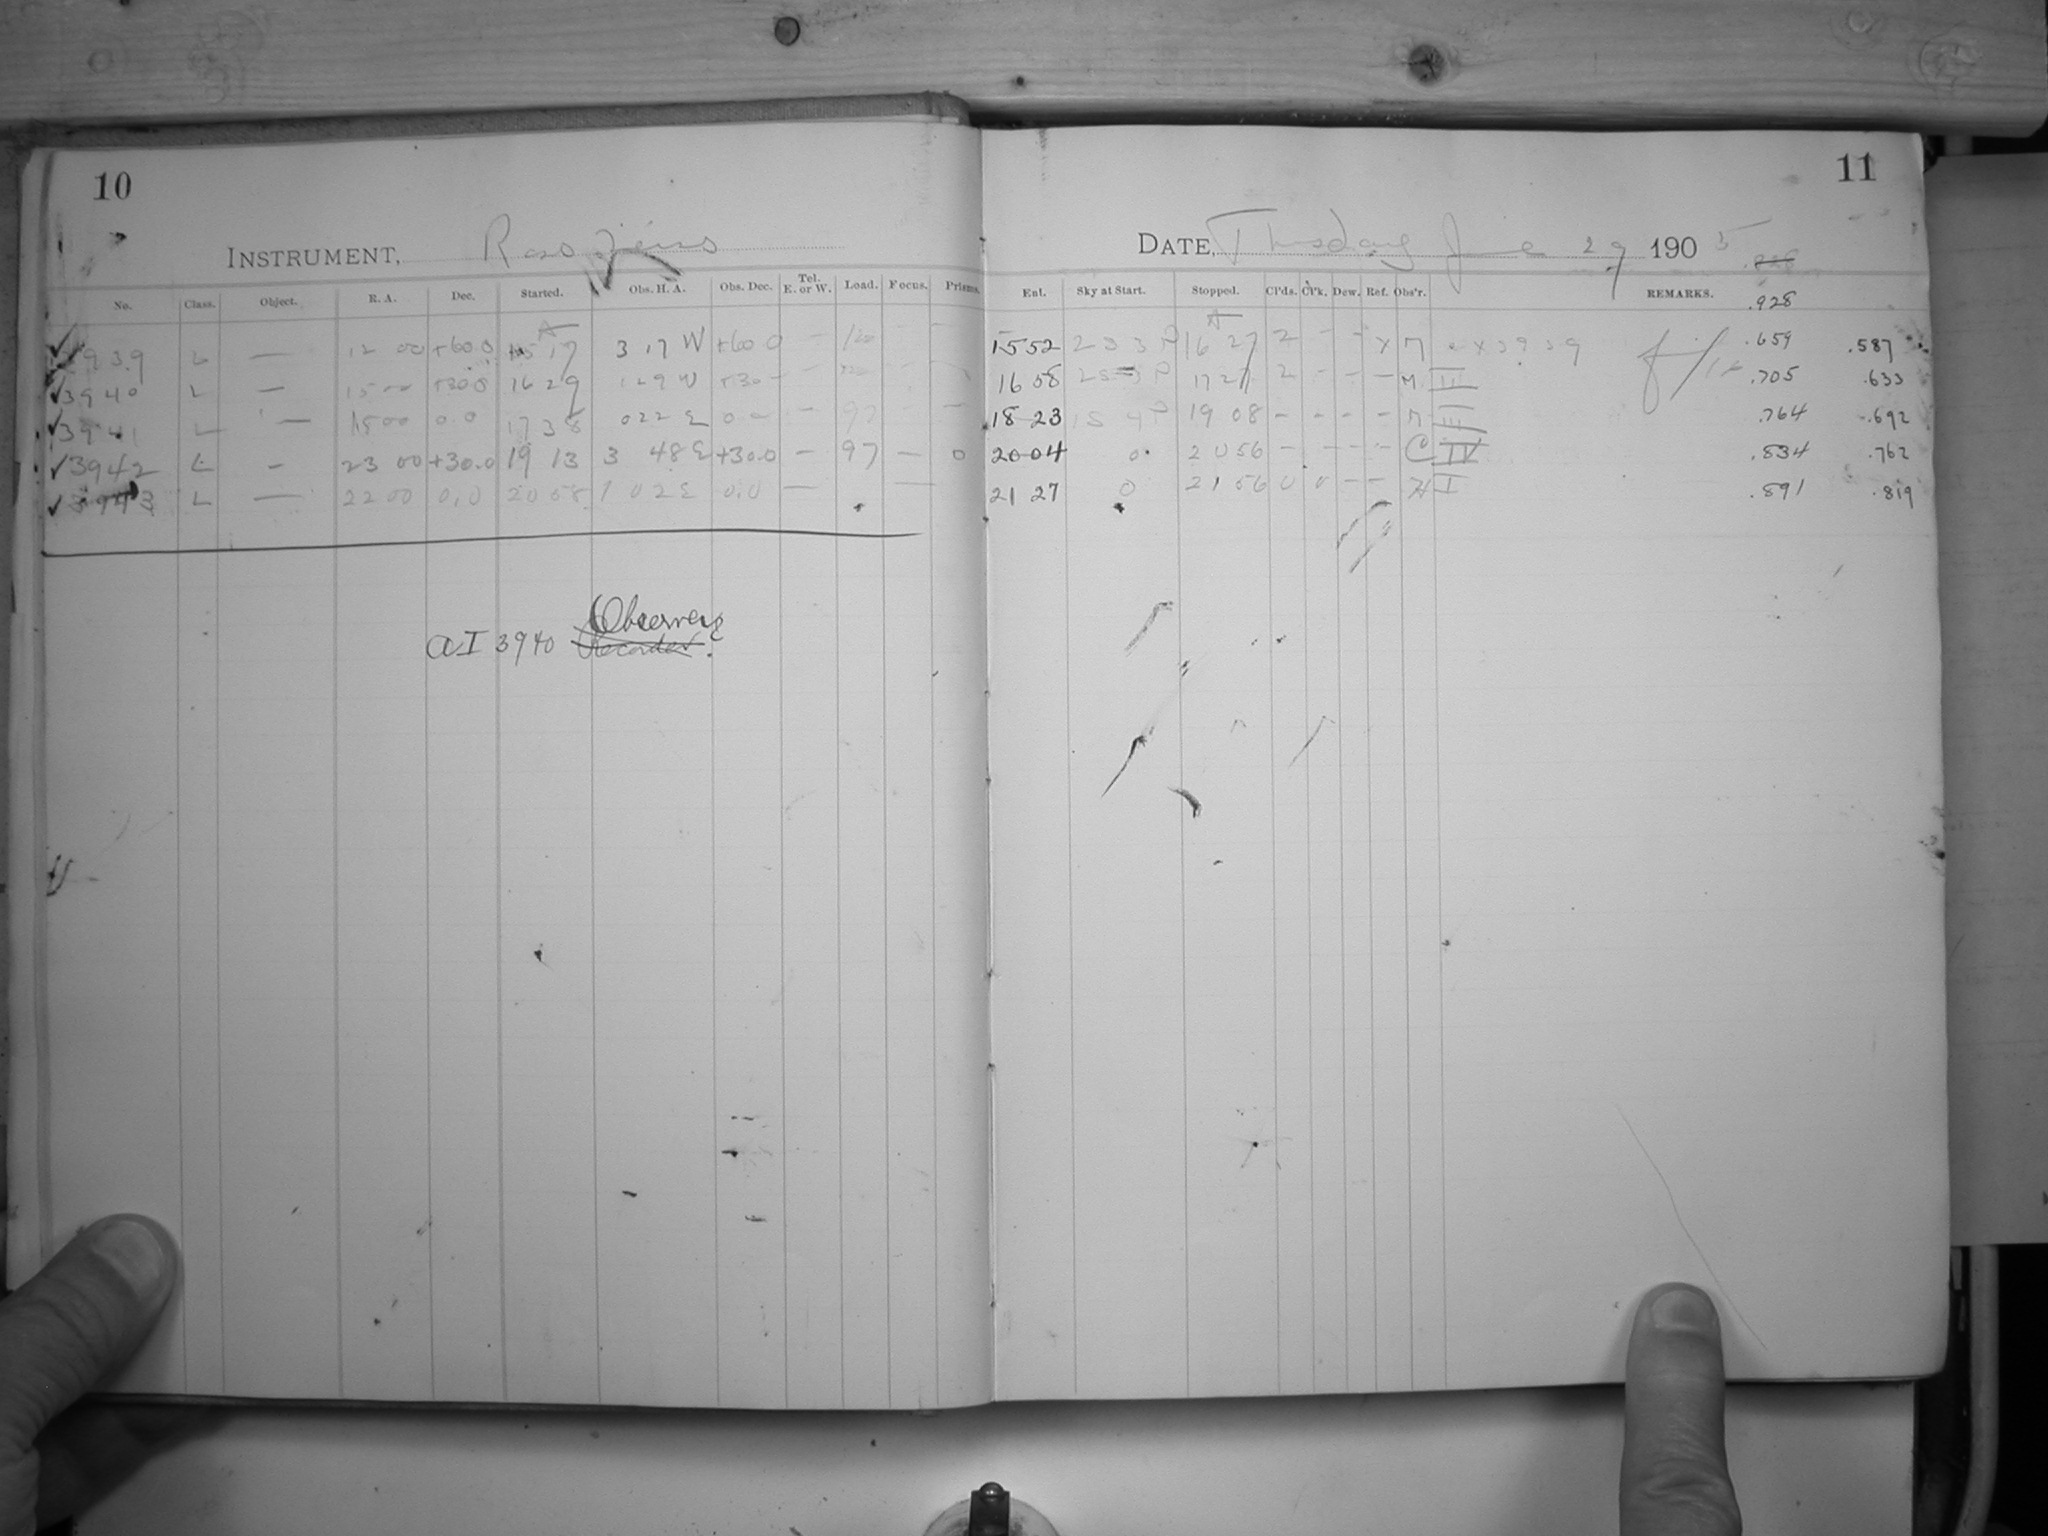 10
INSTRUMENT, Ross Zeiss
No. Class. Object. R. A. Dec. Started. Obs. H. A. Obs. Dec. Tel. E. or W. Load. Focus. Prisms.
3939 L — 12 00 +60.0 15 17 3 17 W +60 0 –
3940 L — 15 00 +30.0 16 29 1 29 W +30 –
3941 L — 15 00 0.0 17 38 0 22 E 0.0 – 97 –
3942 L – 23 00 +30.0 19 13 3 48 E +30.0 – 97 – 0
3943 L — 22 00 0.0 20 58 1 02 E 0.0 — —
AI 3940 Observers Recorder.
11
DATE, Thursday June 29 1905
.928
Ent. Sky at Start. Stopped. Cl'ds. Cl'k. Dew. Ref. Obs'r. REMARKS.
.928
15 52 16 27 2 – – x M x 3939 .659 .587
16 58 17 27 2 – – – M III .705 .633
18 23 19 08 – – – – M III .764 .692
20 04 0 20 56 – – – – C IV .834 .762
21 27 0 21 56 0 0 – – H I .891 .819